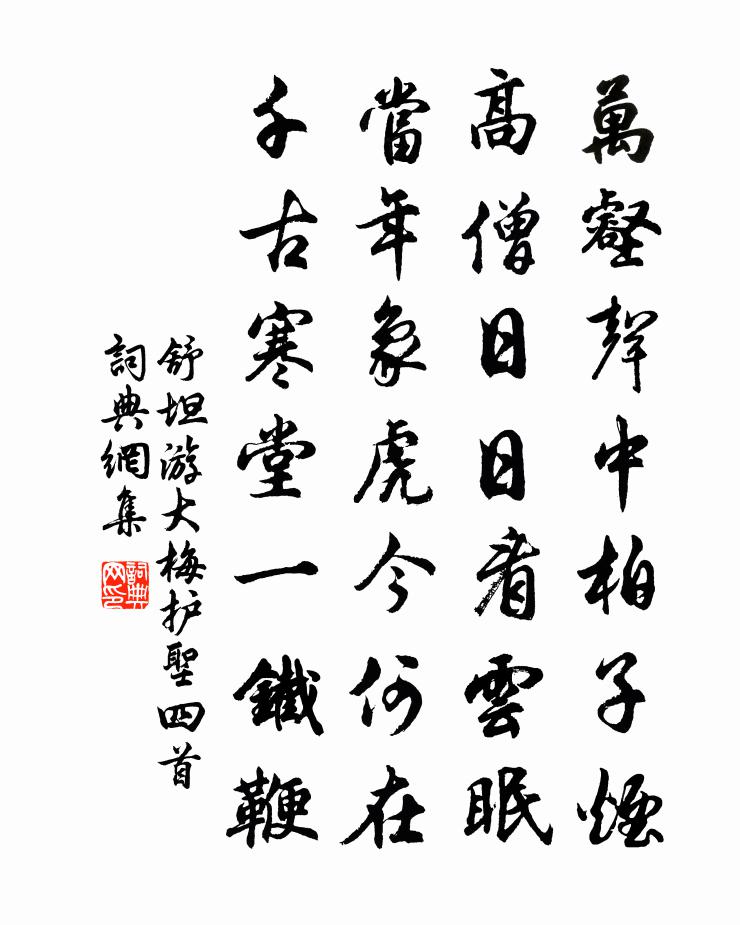 萬壑聲中柏子煙
高僧日日看雲眠
當年象虎今何在
千古寒堂一鐵鞭
舒坦游大梅护聖四首
詞典網集
詞典网印